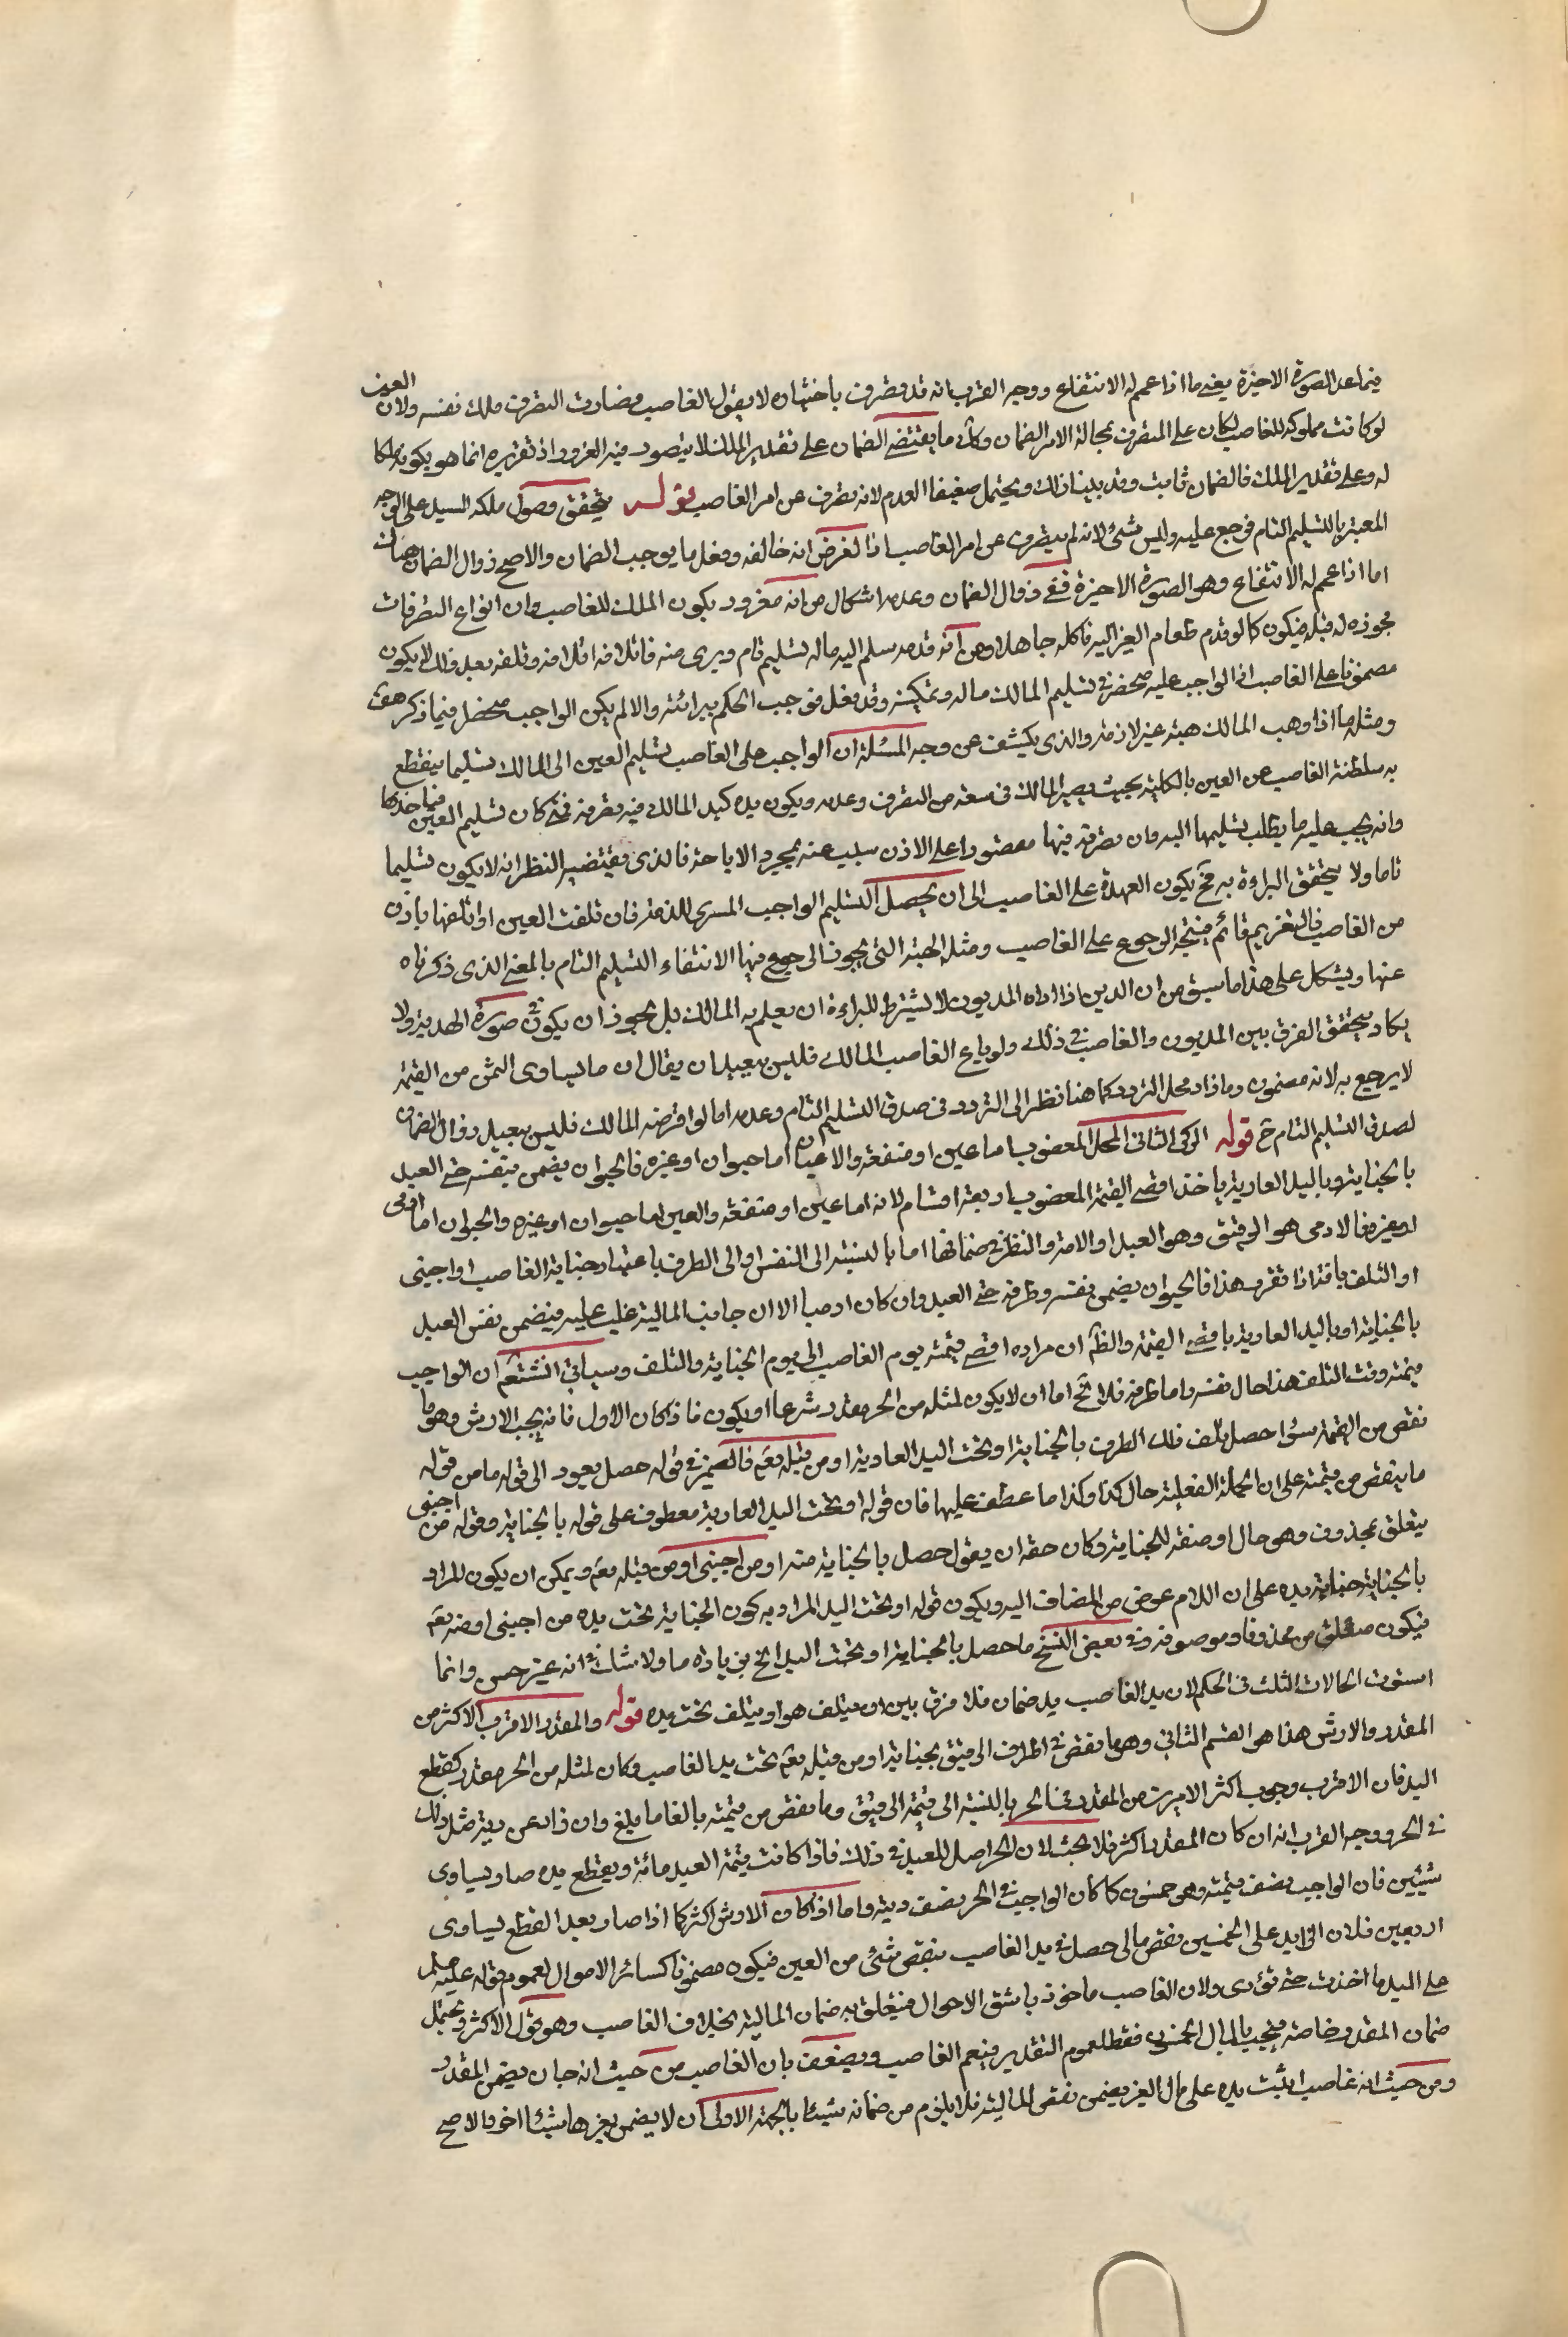 فيما عدا الصورة الاخيرة يعني ما اذا عمم له الانتفاع ووجه القرب انه قد تصرف باختياره لا بقول الغاصب فصادف التصرف ملك نفسه ولان العين
لو كانت مملوكة للغاصب لكان على المتصرف بحالة الامر الضمان وكل ما يقتضي الضمان على تقدير الملك لا يتصور فيه الغرور اذ تغريره انما هو بكونه ملكا
له وعلى تقدير الملك فالضمان ثابت وقد بينا ذلك ويحتمل ضعيفا العدم لانه تصرف عن امر الغاصب قوله يتحقق وصول ملكه اليه على الوجه
المعتبر بالتسليم التام فيرجع عليه وليس بشئ لانه لم يتصرف عن امر الغاصب اذ الغرض انه خالفه وفعل ما يوجب الضمان والاصح زوال الضمان هنا
اما اذا عمم له الانتفاع وهو الصورة الاخيرة ففي زوال الضمان وعدمه اشكال من انه مغرور بكون الملك للغاصب وان انواع التصرفات
مجوزة له قبله فيكون كما لو قدم طعام الغير اليه فاكله جاهلا ومن انه قد سلم اليه ماله تسليم تام ويرى منه فاتلافه اتلافه وتلفه بعد ذلك لا يكون
مضمونا على الغاصب اذ الواجب عليه منحصر في تسليم المالك ماله وتمكينه وقد فعل فوجب الحكم ببرائته والا لم يكن الواجب منحصرا فيما ذكر هف
ومثله ما اذا وهب المالك هبة غير لازمة والذي يكشف عن وجه المسئلة ان الواجب على الغاصب تسليم العين الى المالك تسليما ينقطع
به سلطنة الغاصب عن العين بالكلية بحيث يصير المالك في سعة من التصرف وعدمه ويكون يده كيد المالك فيه تصرفه فمتى كان تسليم العين
وانه يجب عليه ما يطلب تسليمها اليه وان تصرفه فيها مقصورا على الاذن بسبب عنه بمجرد الاباحة فالذي يقتضيه النظر انه لا يكون تسليما
تاما ولا يتحقق البراءة به فح يكون العهدة على الغاصب الى ان يحصل التسليم الواجب المبرئ للذمة فان تلفت العين او اتلفها باذن
من الغاصب فالتغريم قائم فيتجه الرجوع على الغاصب ومثله الهبة التي يجوز الرجوع فيها الانتفاء التسليم التام بالمعنى الذي ذكرناه
عنها ويشكل على هذا ما سبق من ان الدين اذا اداه المديون لا يشترط للبراءة ان يعلم به المالك بل يجوز ان يكون في صورة الهدية ولا
يكاد يتحقق الفرق بين المديون والغاصب في ذلك ولو باع الغاصب المالك فليس ببعيد ان يقال ان ما يساوي الثمن من القيمة
لا يرجع به لانه مضمون وما زاد محل التردد كما هنا نظرا الى التردد في صدق التسليم التام وعدمه اما لو اقرضه المالك فليس ببعيد زوال الضمان
لصدق التسليم التام ح قوله الركن الثاني المحل المغصوب اما عين او منفعة والاعيان اما حيوان او غيره فالحيوان يضمن بنفسه حتى العبد
بالجناية وباليد العادية باخذ اقصى القيمة المغصوب اربعة اقسام لانه اما عين او منفعة والعين اما حيوان او غيره والحيوان اما ادمي
او غيره فالادمي هو الرقيق وهو العبد او الامة والنظر في ضمانها اما بالنسبة الى النفس او الى الطرف باعتبار جناية الغاصب او اجنبي
او التلف بافة اذا تقرر هذا فالحيوان يضمن نفسه وطرفه حتى العبد وان كان ادميا الا ان جانب المالية غلب عليه فيضمن نفس العبد
بالجناية او باليد العادية باقصى القيمة والظ ان مراده اقصى قيمته يوم الغاصب الى يوم الجناية والتلف وسياتي انشتعم ان الواجب
قيمته وقت التلف هذا حال نفسه واما طرفه فلا يخ اما ان لا يكون لمثله من الحر مقدر شرعا او يكون فاذا كان الاول فانه يجب الارش وهو ما
نقص من القيمة سوا حصل تلف ذلك الطرف بالجناية او تحت اليد العادية او من قبله تعم فالضمير في قوله حصل يعود الى قوله ما من قوله
ما ينقص من قيمته على ان الجملة الفعلية حال كذا وكذا ما عطف عليها فان قوله او تحت اليد العادية معطوف على قوله بالجناية وقوله من اجنبي
يتعلق بمحذوف وهو حال او صفة للجناية وكان حقه ان يقول حصل بالجناية منه او من اجنبي او من قبله تعم ويمكن ان يكون المراد
بالجناية جناية يده على ان اللام عوض من المضاف اليه ويكون قوله او تحت اليد المراد به كون الجناية تحت يده من اجنبي او منه تعم
فيكون متعلق من محذوفا وموصوفه وفي بعض النسخ ما حصل بالجناية او تحت اليد الخ بزيادة ما ولا شك في انه غير حسن وانما
استوت الحالات الثلث في الحكم لان يد الغاصب يد ضمان فلا فرق بين ان يتلف هو او يتلف تحت يده قوله والمقدر الاقرب الاكثر من
المقدر والارش هذا هو القسم الثاني وهو ما نقص في اطراف الرقيق بجناية او من قبله تعم تحت يد الغاصب وكان لمثله من الحر مقدر كقطع
اليد فان الاقرب وجوب اكثر الامرين من المقدر في الحر بالنسبة الى قيمة الرقيق وما نقص من قيمته بالغا ما بلغ وان زاد عن دية مثل ذلك
في الحر ووجه القرب انه ان كان المقدر اكثر فلا بحث لان الحر اصل للعبد في ذلك فاذا كانت قيمة العبد مائة وبقطع يده صار يساوي
ستين فان الواجب نصف قيمته وهي خمسون كما كان الواجب في الحر نصف ديته واما اذا كان الارش اكثر كما اذا صار بعد القطع يساوي
اربعين فلان الزايد على الخمسين نقص مالي حصل في يد الغاصب بنقص شئ من العين فيكون مضمونا كسائر الاموال لعموم قوله عليه السلم
على اليد ما اخذت حتى تؤدى ولان الغاصب ماخوذ باشق الاحوال فيتعلق به ضمان المالية بخلاف الغاصب وهو قول الاكثر ويحتمل
ضمان المقدر خاصة فيجب بالمال الخمسون فقط لعموم التقدير فيعم الغاصب ويضعف بان الغاصب من حيث انه جان يضمن المقدر
ومن حيث انه غاصب اثبت يده على مال الغير يضمن نقص المالية فلا يلزم من ضمانه شيئا بالجهة الاولى ان لا يضمن بغيرها شيئا اخر والاصح